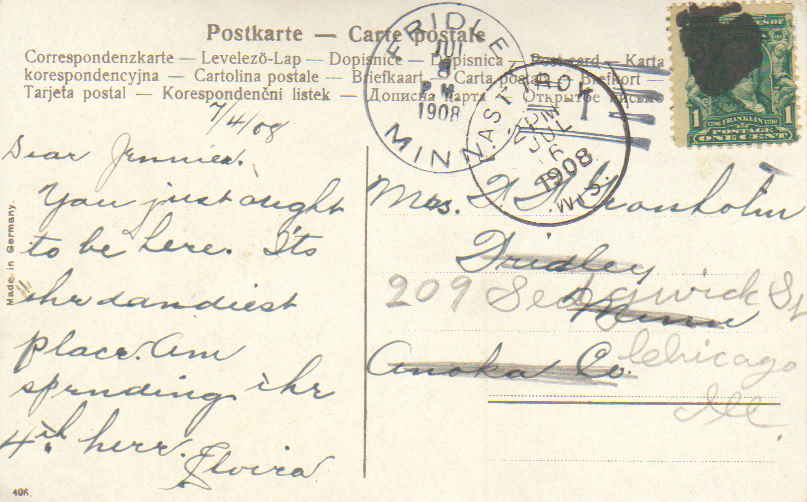 Postkarte — Carte postale
Correspondenzkarte — Levelező-Lap — Dopisnice — Dopisnica — Post card — Karta
korespondencyjna — Cartolina postale — Briefkaart — Carta postala — Brefkort —
Tarjeta postal — Korespondenční listek — Дописна карта — Открытое письмо
FRIDLE
JUL
P.M.
1908
MINN
EAST TROY
2 PM
JUL
6
1908
WIS.
1
POSTAGE
ONE CENT
1
7/4/08
Dear Jennie.
You just aught
to be here. Its
the dandiest
place. Am
spending the
4th here.
Elvira
Mrs. Gronholm
Fridley
209 Sedgwick St
Minn
Anoka Co. Chicago
Ill
Made in Germany.
406